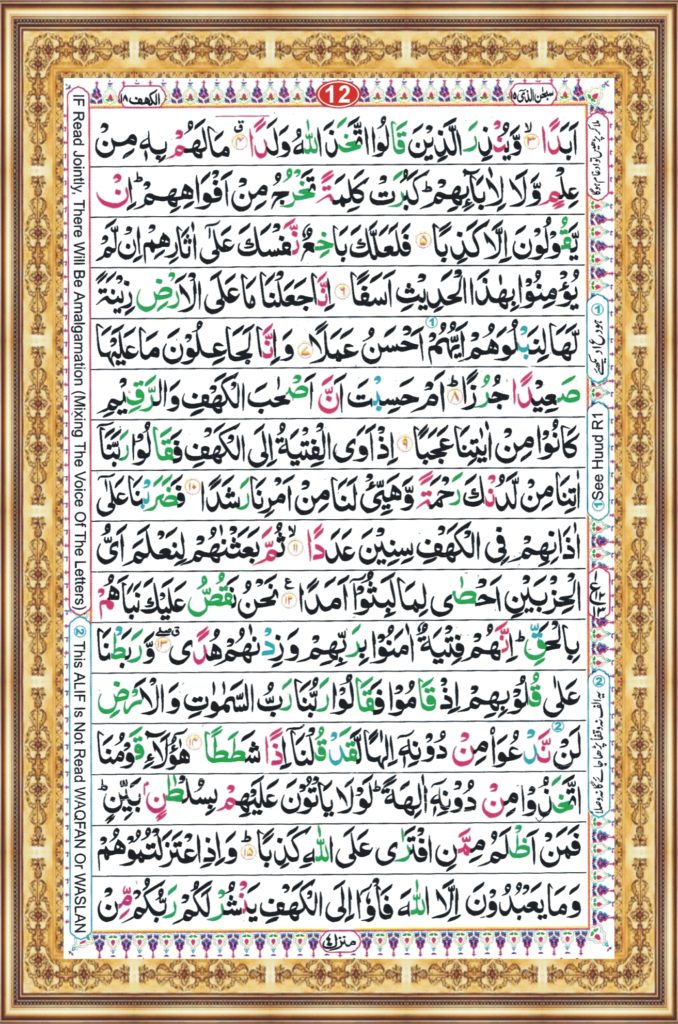 سبحٰن الذی ۱۵
12
الکھف ۱۸
اَبَدًا ۙ﴿۳﴾ وَّيُنْذِرَ الَّذِيْنَ قَالُوا اتَّخَذَ اللّٰهُ وَلَدًا ۗ﴿۴﴾ مَا لَهُمْ بِهٖ مِنْ
عِلْمٍ وَّلَا لِاٰبَآئِهِمْ ؕ كَبُرَتْ كَلِمَةً تَخْرُجُ مِنْ اَفْوَاهِهِمْ ؕ اِنْ
يَّقُوْلُوْنَ اِلَّا كَذِبًا ﴿۵﴾ فَلَعَلَّكَ بَاخِعٌ نَّفْسَكَ عَلٰٓى اٰثَارِهِمْ اِنْ لَّمْ
يُؤْمِنُوْا بِهٰذَا الْحَدِيْثِ اَسَفًا ﴿۶﴾ اِنَّا جَعَلْنَا مَا عَلَى الْاَرْضِ زِيْنَةً
لَّهَا لِنَبْلُوَهُمْ اَيُّهُمْ اَحْسَنُ عَمَلًا ﴿۷﴾ وَاِنَّا لَجَاعِلُوْنَ مَا عَلَيْهَا
صَعِيْدًا جُرُزًا ؕ﴿۸﴾ اَمْ حَسِبْتَ اَنَّ اَصْحٰبَ الْكَهْفِ وَالرَّقِيْمِ
كَانُوْا مِنْ اٰيٰتِنَا عَجَبًا ﴿۹﴾ اِذْ اَوَى الْفِتْيَةُ اِلَى الْكَهْفِ فَقَالُوْا رَبَّنَآ
اٰتِنَا مِنْ لَّدُنْكَ رَحْمَةً وَّهَيِّئْ لَنَا مِنْ اَمْرِنَا رَشَدًا ﴿۱۰﴾ فَضَرَبْنَا عَلٰٓى
اٰذَانِهِمْ فِى الْكَهْفِ سِنِيْنَ عَدَدًا ۙ﴿۱۱﴾ ثُمَّ بَعَثْنٰهُمْ لِنَعْلَمَ اَىُّ
الْحِزْبَيْنِ اَحْصٰى لِمَا لَبِثُوْٓا اَمَدًا ﴿۱۲﴾ نَحْنُ نَقُصُّ عَلَيْكَ نَبَاَهُمْ
بِالْحَقِّ ؕ اِنَّهُمْ فِتْيَةٌ اٰمَنُوْا بِرَبِّهِمْ وَزِدْنٰهُمْ هُدًى ۖ﴿۱۳﴾ وَّرَبَطْنَا
عَلٰى قُلُوْبِهِمْ اِذْ قَامُوْا فَقَالُوْا رَبُّنَا رَبُّ السَّمٰوٰتِ وَالْاَرْضِ
لَنْ نَّدْعُوَا۟ مِنْ دُوْنِهٖٓ اِلٰهًا لَّقَدْ قُلْنَآ اِذًا شَطَطًا ﴿۱۴﴾ هٰٓؤُلَآءِ قَوْمُنَا
اتَّخَذُوْا مِنْ دُوْنِهٖٓ اٰلِهَةً ؕ لَوْلَا يَاْتُوْنَ عَلَيْهِمْ بِسُلْطٰنٍۢ بَيِّنٍ ؕ
فَمَنْ اَظْلَمُ مِمَّنِ افْتَرٰى عَلَى اللّٰهِ كَذِبًا ؕ﴿۱۵﴾ وَاِذِ اعْتَزَلْتُمُوْهُمْ
وَمَا يَعْبُدُوْنَ اِلَّا اللّٰهَ فَاْوٗٓا اِلَى الْكَهْفِ يَنْشُرْ لَكُمْ رَبُّكُمْ مِّنْ
منزل ۴
IF Read Jointly, There Will Be Amalgamation (Mixing The Voice Of The Letters)
② This ALIF Is Not Read WAQFAN Or WASLAN
①See Huud R1